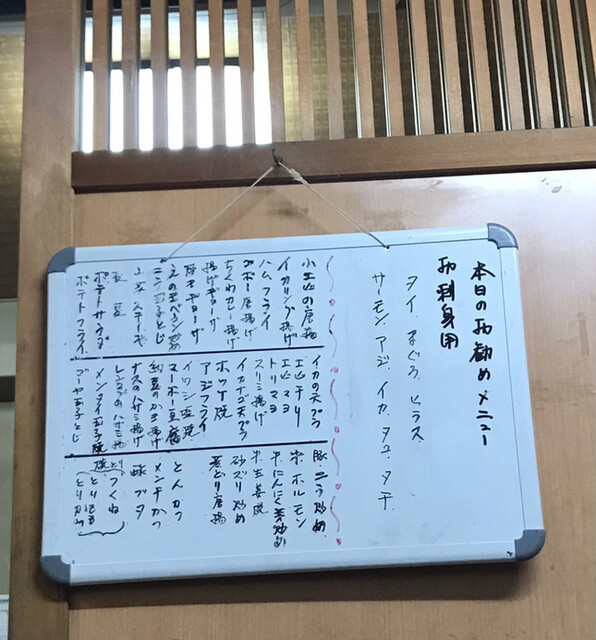 本日のお勧めメニュー
お刺身用
タイ、まぐろ、ヒラス、
サーモン、アジ、イカ、タコ、タチ
小エビの唐揚
イカリング揚げ
ハムフライ
ゴボー唐揚げ
ちくわカレー揚げ
揚げギョーザ
焼きギョーザ
えのきベーコン炒め
ニラ玉子とじ
山芋ステーキ
枝豆
ポテトサラダ
ポテトフライ
イカの天プラ
エビチリ
エビマヨ
トリマヨ
スリミ揚げ
イカナゴ天プラ
ホッケ焼
アジフライ
イワシ塩焼
マーボー豆腐
納豆のかき揚げ
ナスのハサミ揚げ
レンコンのハサミ揚
メンタイ玉子焼
ゴーヤ玉子とじ
豚ニラ炒め
牛ホルモン
牛にんにく芽炒め
牛生姜焼
砂ズリ炒め
若どり唐揚
とんカツ
メンチかつ
酢ブタ
つくね